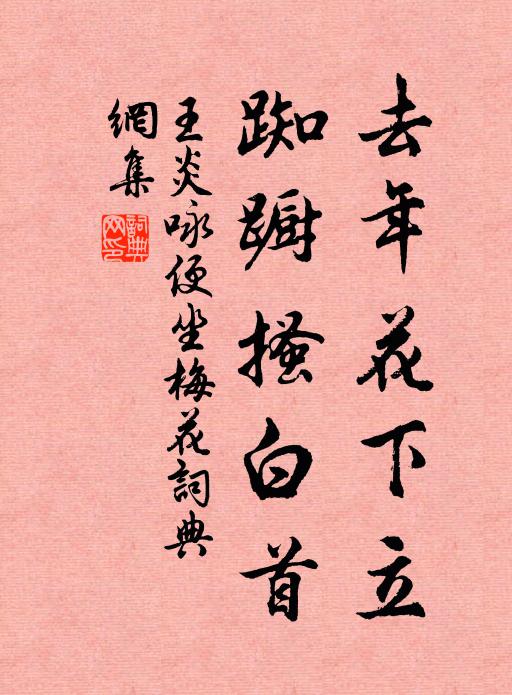 去年花下立
踟蹰搔白首
王炎咏便坐梅花詞典
網集
詞典網印